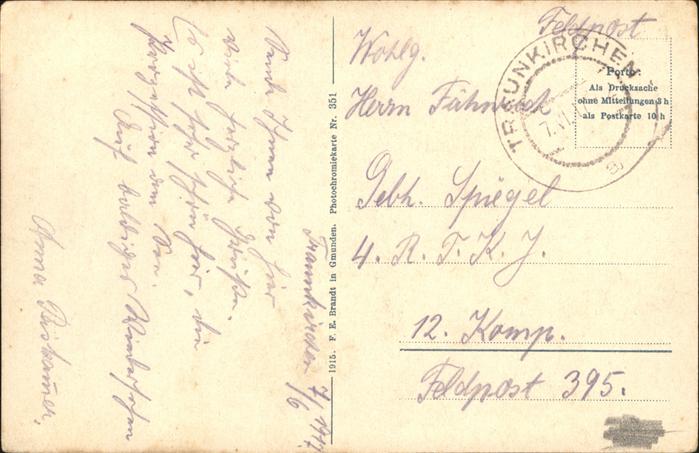 Feldpost
Wohlg.
Herrn Fähnrich
Gebh. Spiegel
4. R. T. K. J.
12. Komp.
Feldpost 395.
TRAUNKIRCHEN
7.VI.
a
Porto:
Als Drucksache
ohne Mitteilungen 3 h
als Postkarte 10 h
1915. F. E. Brandt in Gmunden. Photochromiekarte Nr. 351
Traunkirchen 7/6 1917.
Ihnen von hier
viele herzliche Grüße.
Es ist sehr schön hier, die
am See.
Auf baldiges Wiedersehen
Anna